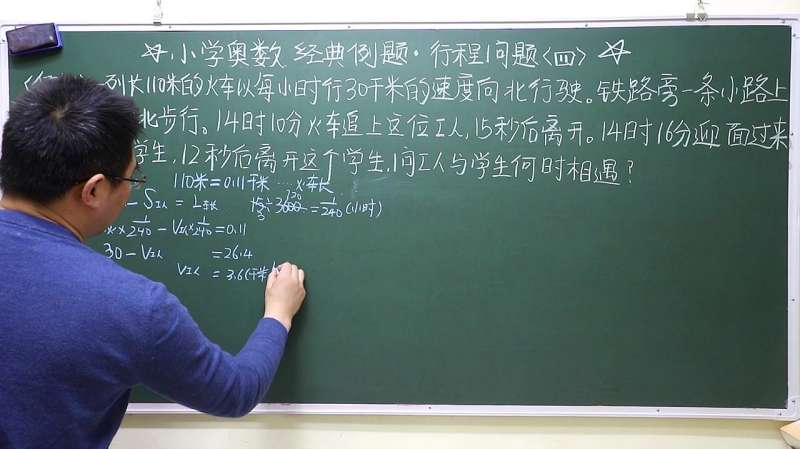 ☆ 小学奥数 经典例题·行程问题<四> ☆
列长110米的火车以每小时行30千米的速度向北行驶。铁路旁一条小路上
北步行。14时10分火车追上这位工人,15秒后离开。14时16分迎面过来
学生,12秒后离开这个学生,问工人与学生何时相遇?
110米=0.11千米 …火车长
- S工人 = L车长 15÷3600=1/240(小时)
× 1/240 - V工人× 1/240 =0.11
30-V工人 =26.4
V工人 = 3.6(千米